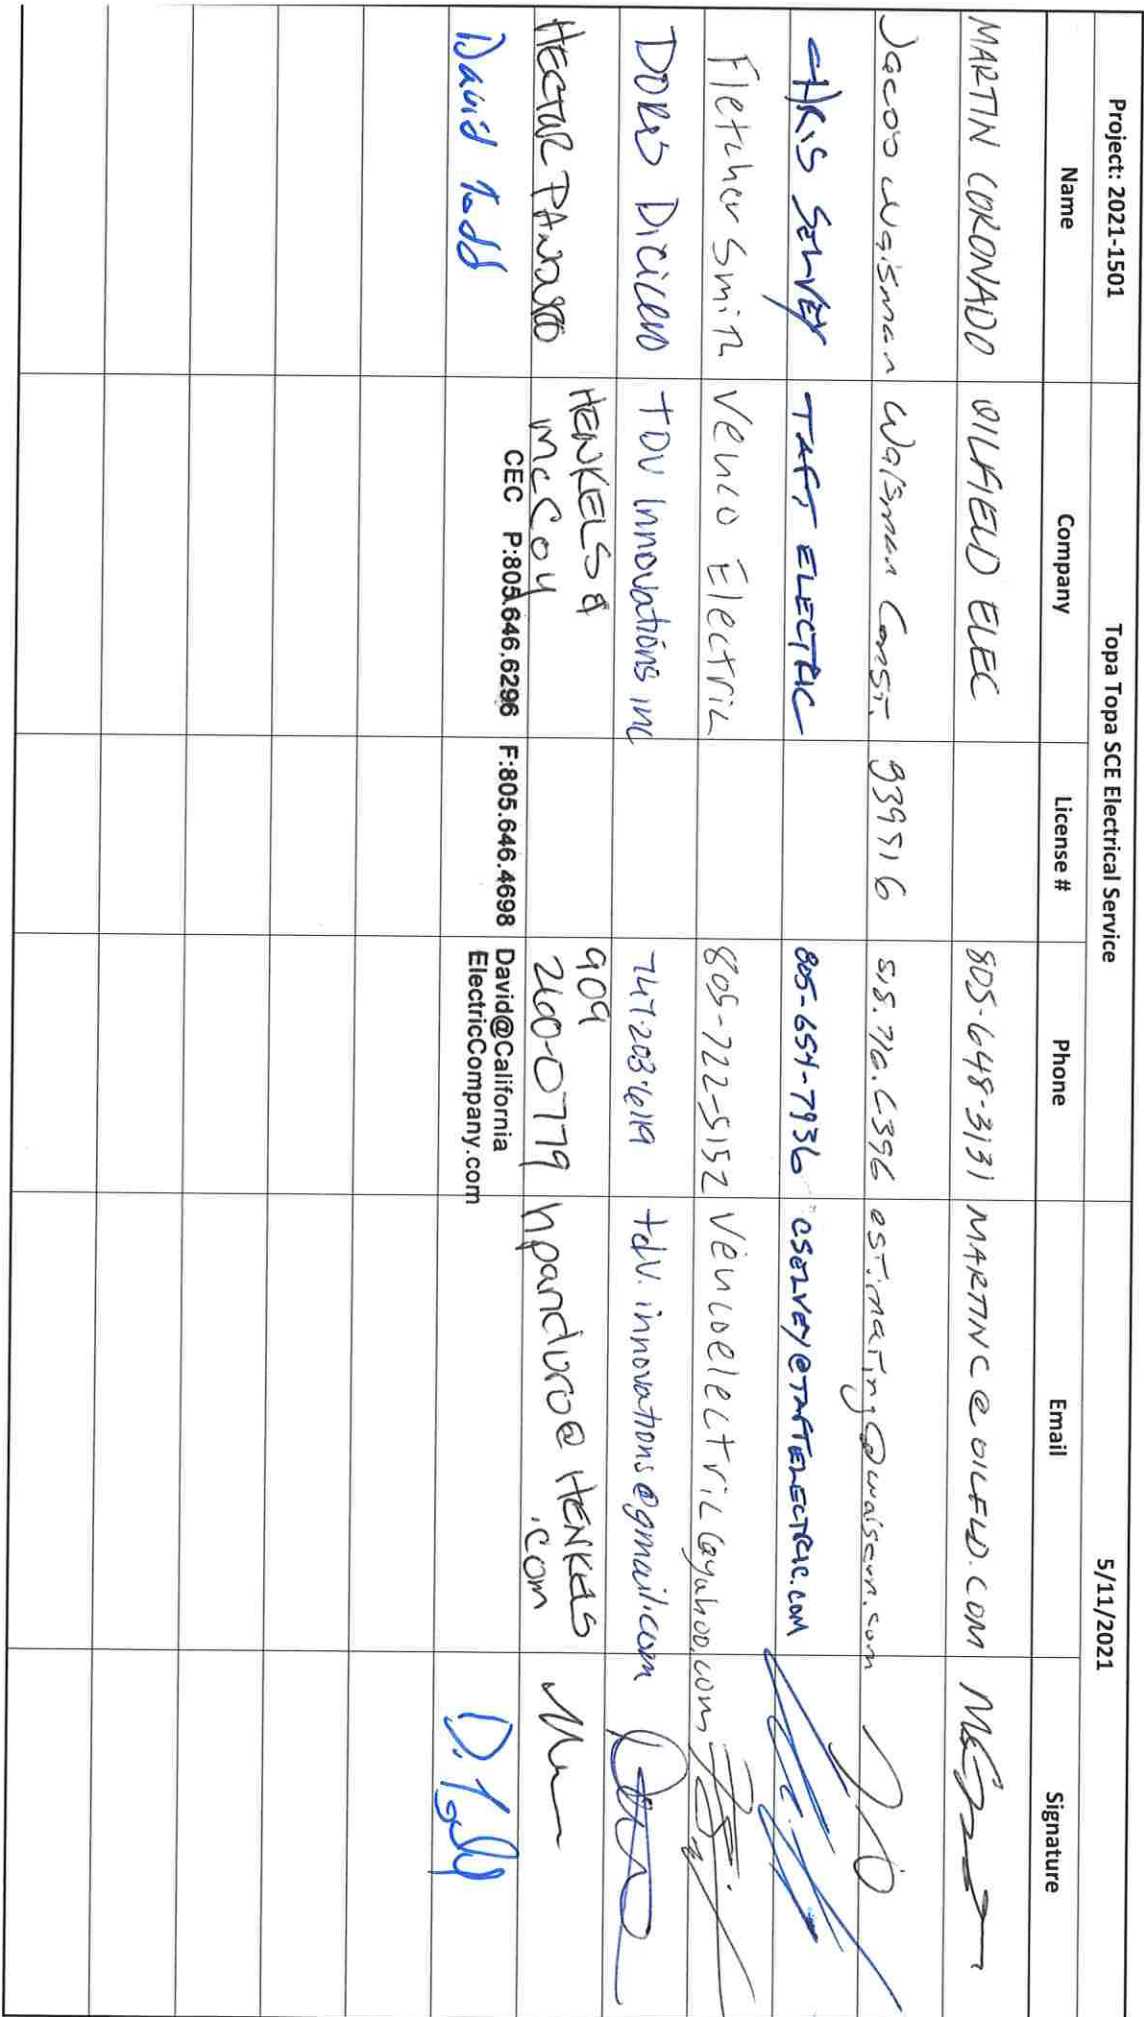 Project: 2021-1501 Topa Topa SCE Electrical Service 5/11/2021
Name Company License # Phone Email Signature
MARTIN CORONADO OILFIELD ELEC 805-648-3131 MARTINC@OILFLD.COM
Jacob Waisman Waisman Const. 939916 818.716.6396 estimating@waiscon.com
CHRIS SELVEY TAFT ELECTRIC 805-654-7936 CSELVEY@TAFTELECTRIC.COM
Fletcher Smith Venco Electric 805-722-5152 Vencoelectric@yahoo.com
DORIS Dicicco TDV Innovations inc 747.203.6119 tdv.innovations@gmail.com
HECTOR PANDURO HENKELS & McCoy 909 260-0779 hpanduro@HENKELS.com
David Todd CEC P:805.646.6296 F:805.646.4698 David@CaliforniaElectricCompany.com D. Todd